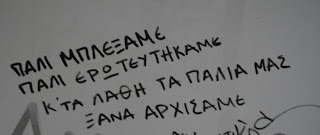 ΠΑΛΙ ΜΠΛΕΞΑΜΕ
ΠΑΛΙ ΕΡΩΤΕΥΤΗΚΑΜΕ
Κ'ΤΑ ΛΑΘΗ ΤΑ ΠΑΛΙΑ ΜΑΣ
ΞΑΝΑ ΑΡΧΙΣΑΜΕ